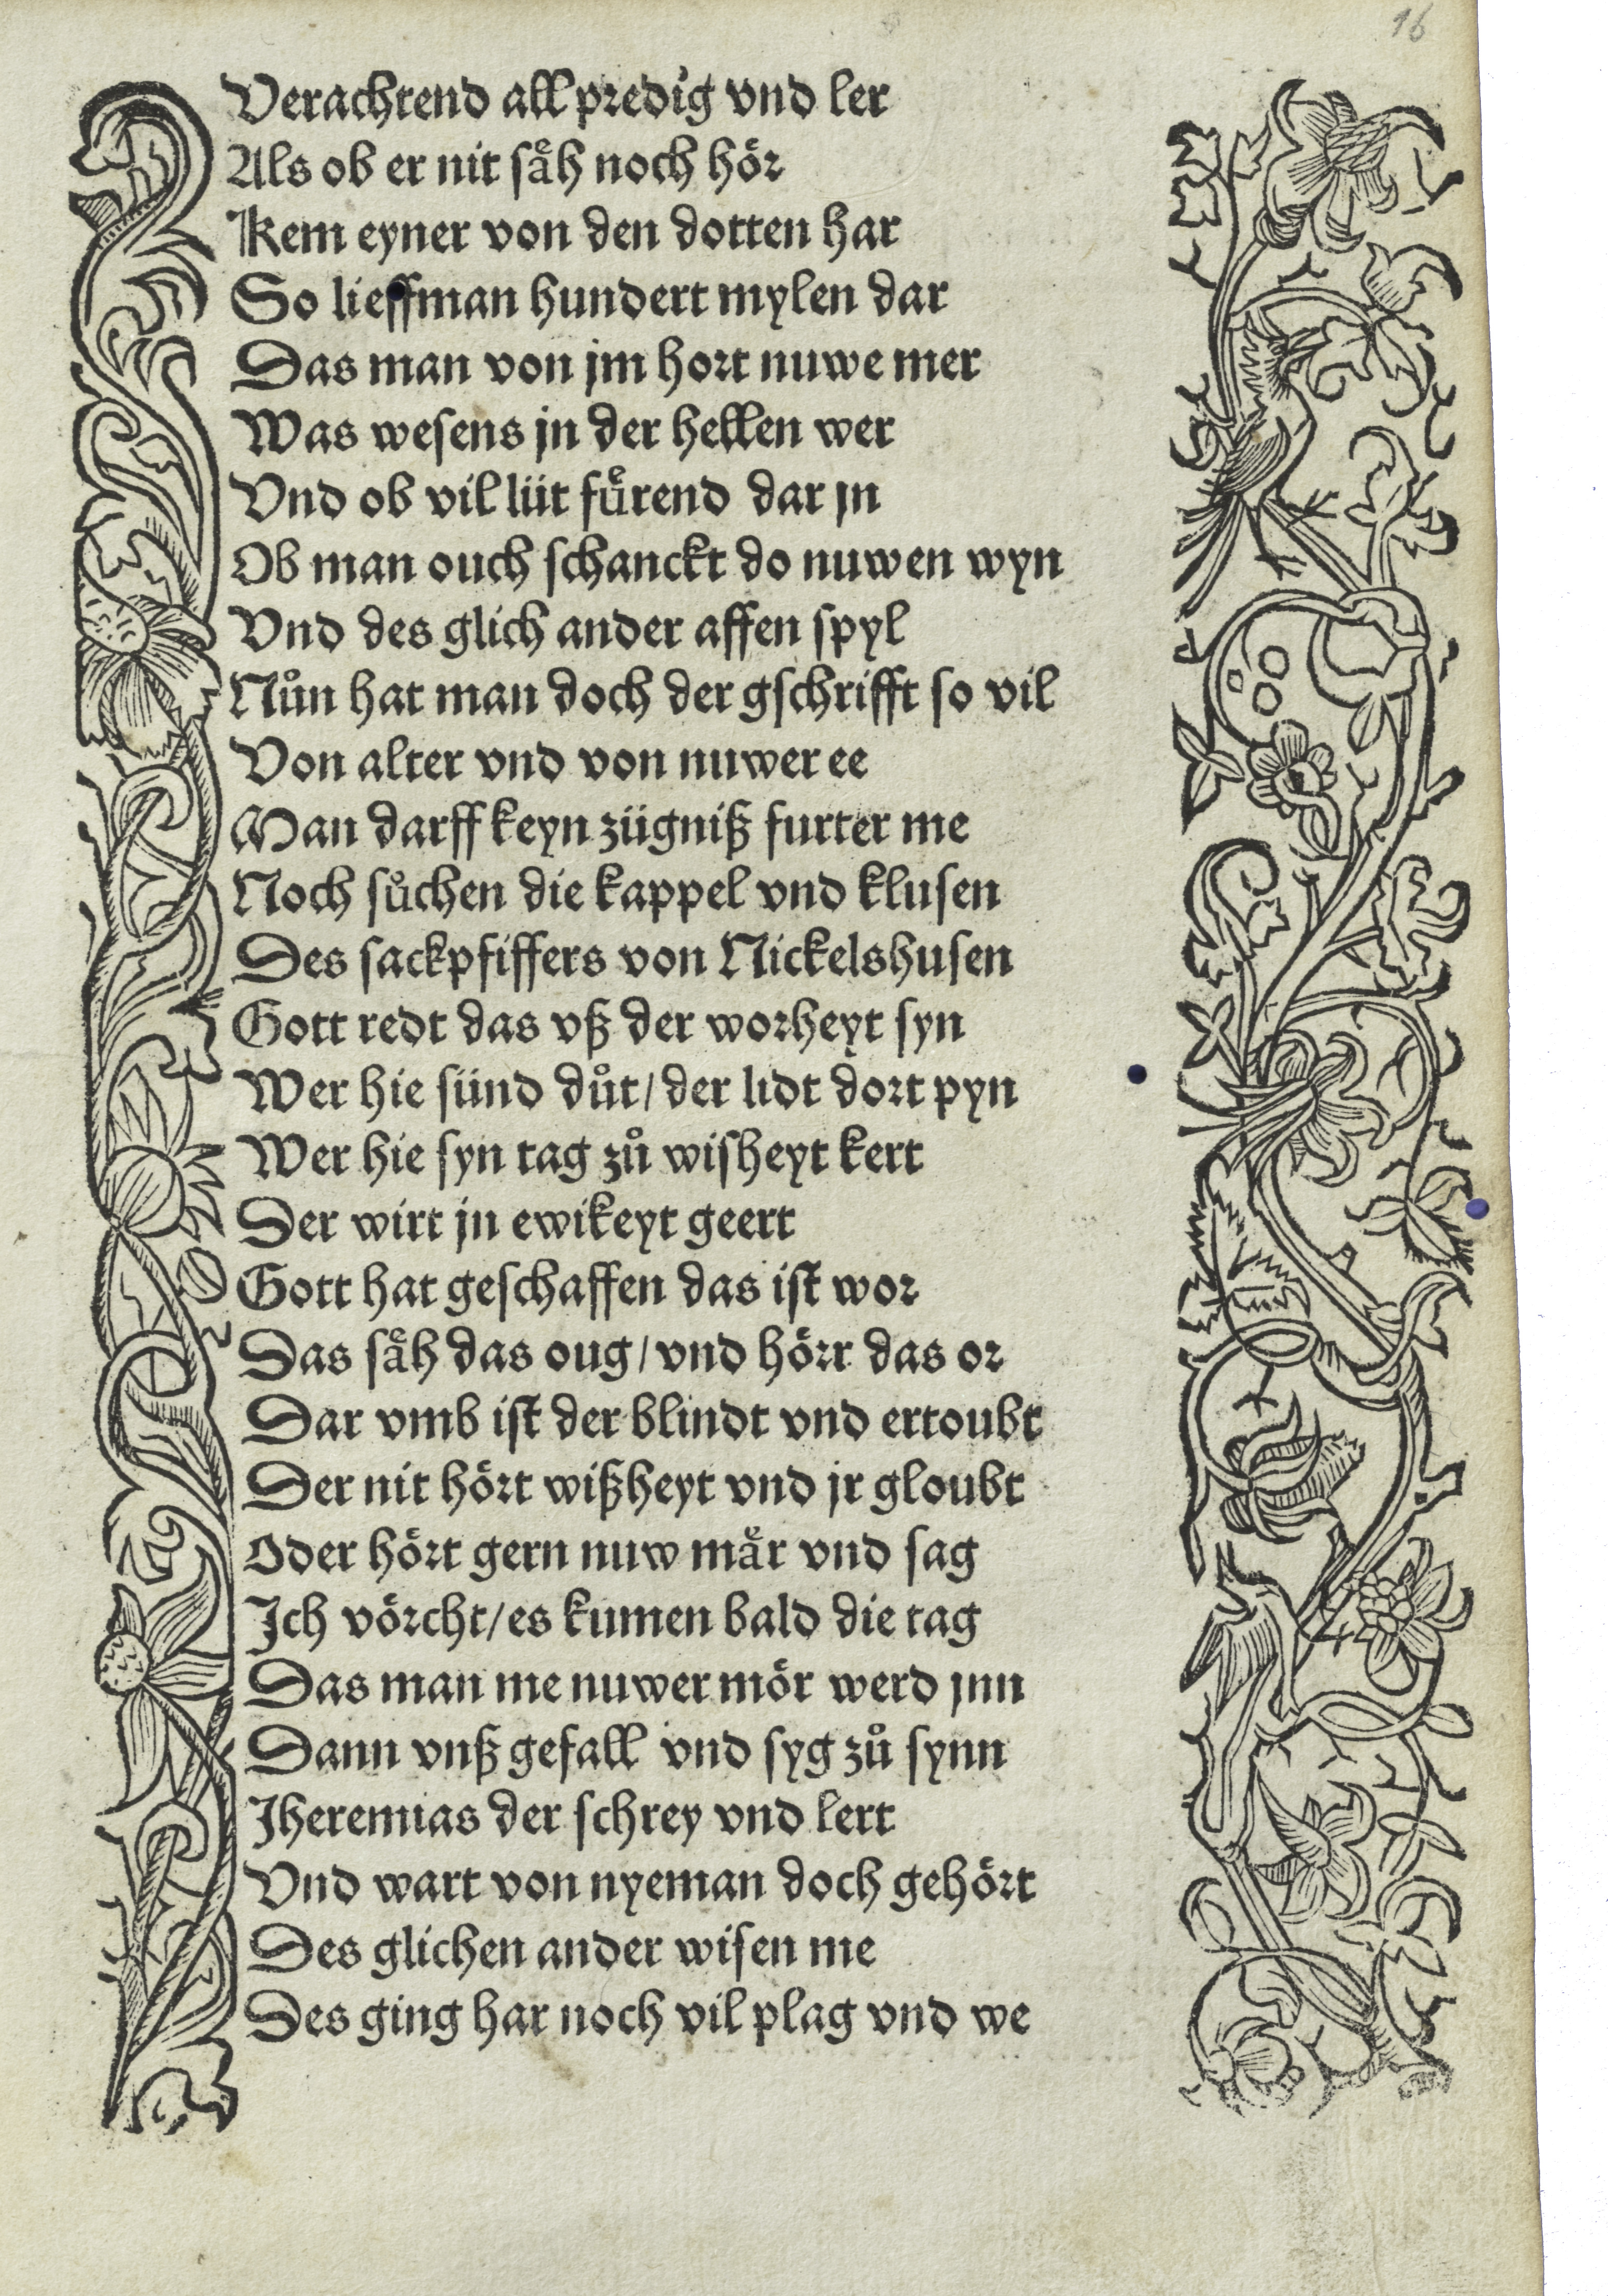 16
Verachtend all predig vnd ler
Als ob er nit saͤh noch hoͤr
Kem eyner von den dotten har
So lieff man hundert mylen dar
Das man von jm hort nuwe mer
Was wesens jn der hellen wer
Vnd ob vil lüt fuͤrend dar jn
Ob man ouch schanckt do nuwen wyn
Vnd des glich ander affen spyl
Nůn hat man doch der gschrifft so vil
Von alter vnd von nuwer ee
Man darff keyn zügniß furter me
Noch sůchen die kappel vnd klusen
Des sackpfiffers von Nickelshusen
Gott redt das vß der worheyt syn
Wer hie sünd důt/ der lidt dort pyn
Wer hie syn tag zů wisheyt kert
Der wirt jn ewikeyt geert
Gott hat geschaffen das ist wor
Das saͤh das oug/ vnd hoͤrt das or
Dar vmb ist der blindt vnd ertoubt
Der nit hoͤrt wißheyt vnd jr gloubt
Oder hoͤrt gern nuw maͤr vnd sag
Ich voͤrcht/ es kumen bald die tag
Das man me nuwer moͤr werd jnn
Dann vnß gefall vnd syg zů synn
Jheremias der schrey vnd lert
Vnd wart von nyeman doch gehoͤrt
Des glichen ander wisen me
Des ging har noch vil plag vnd we